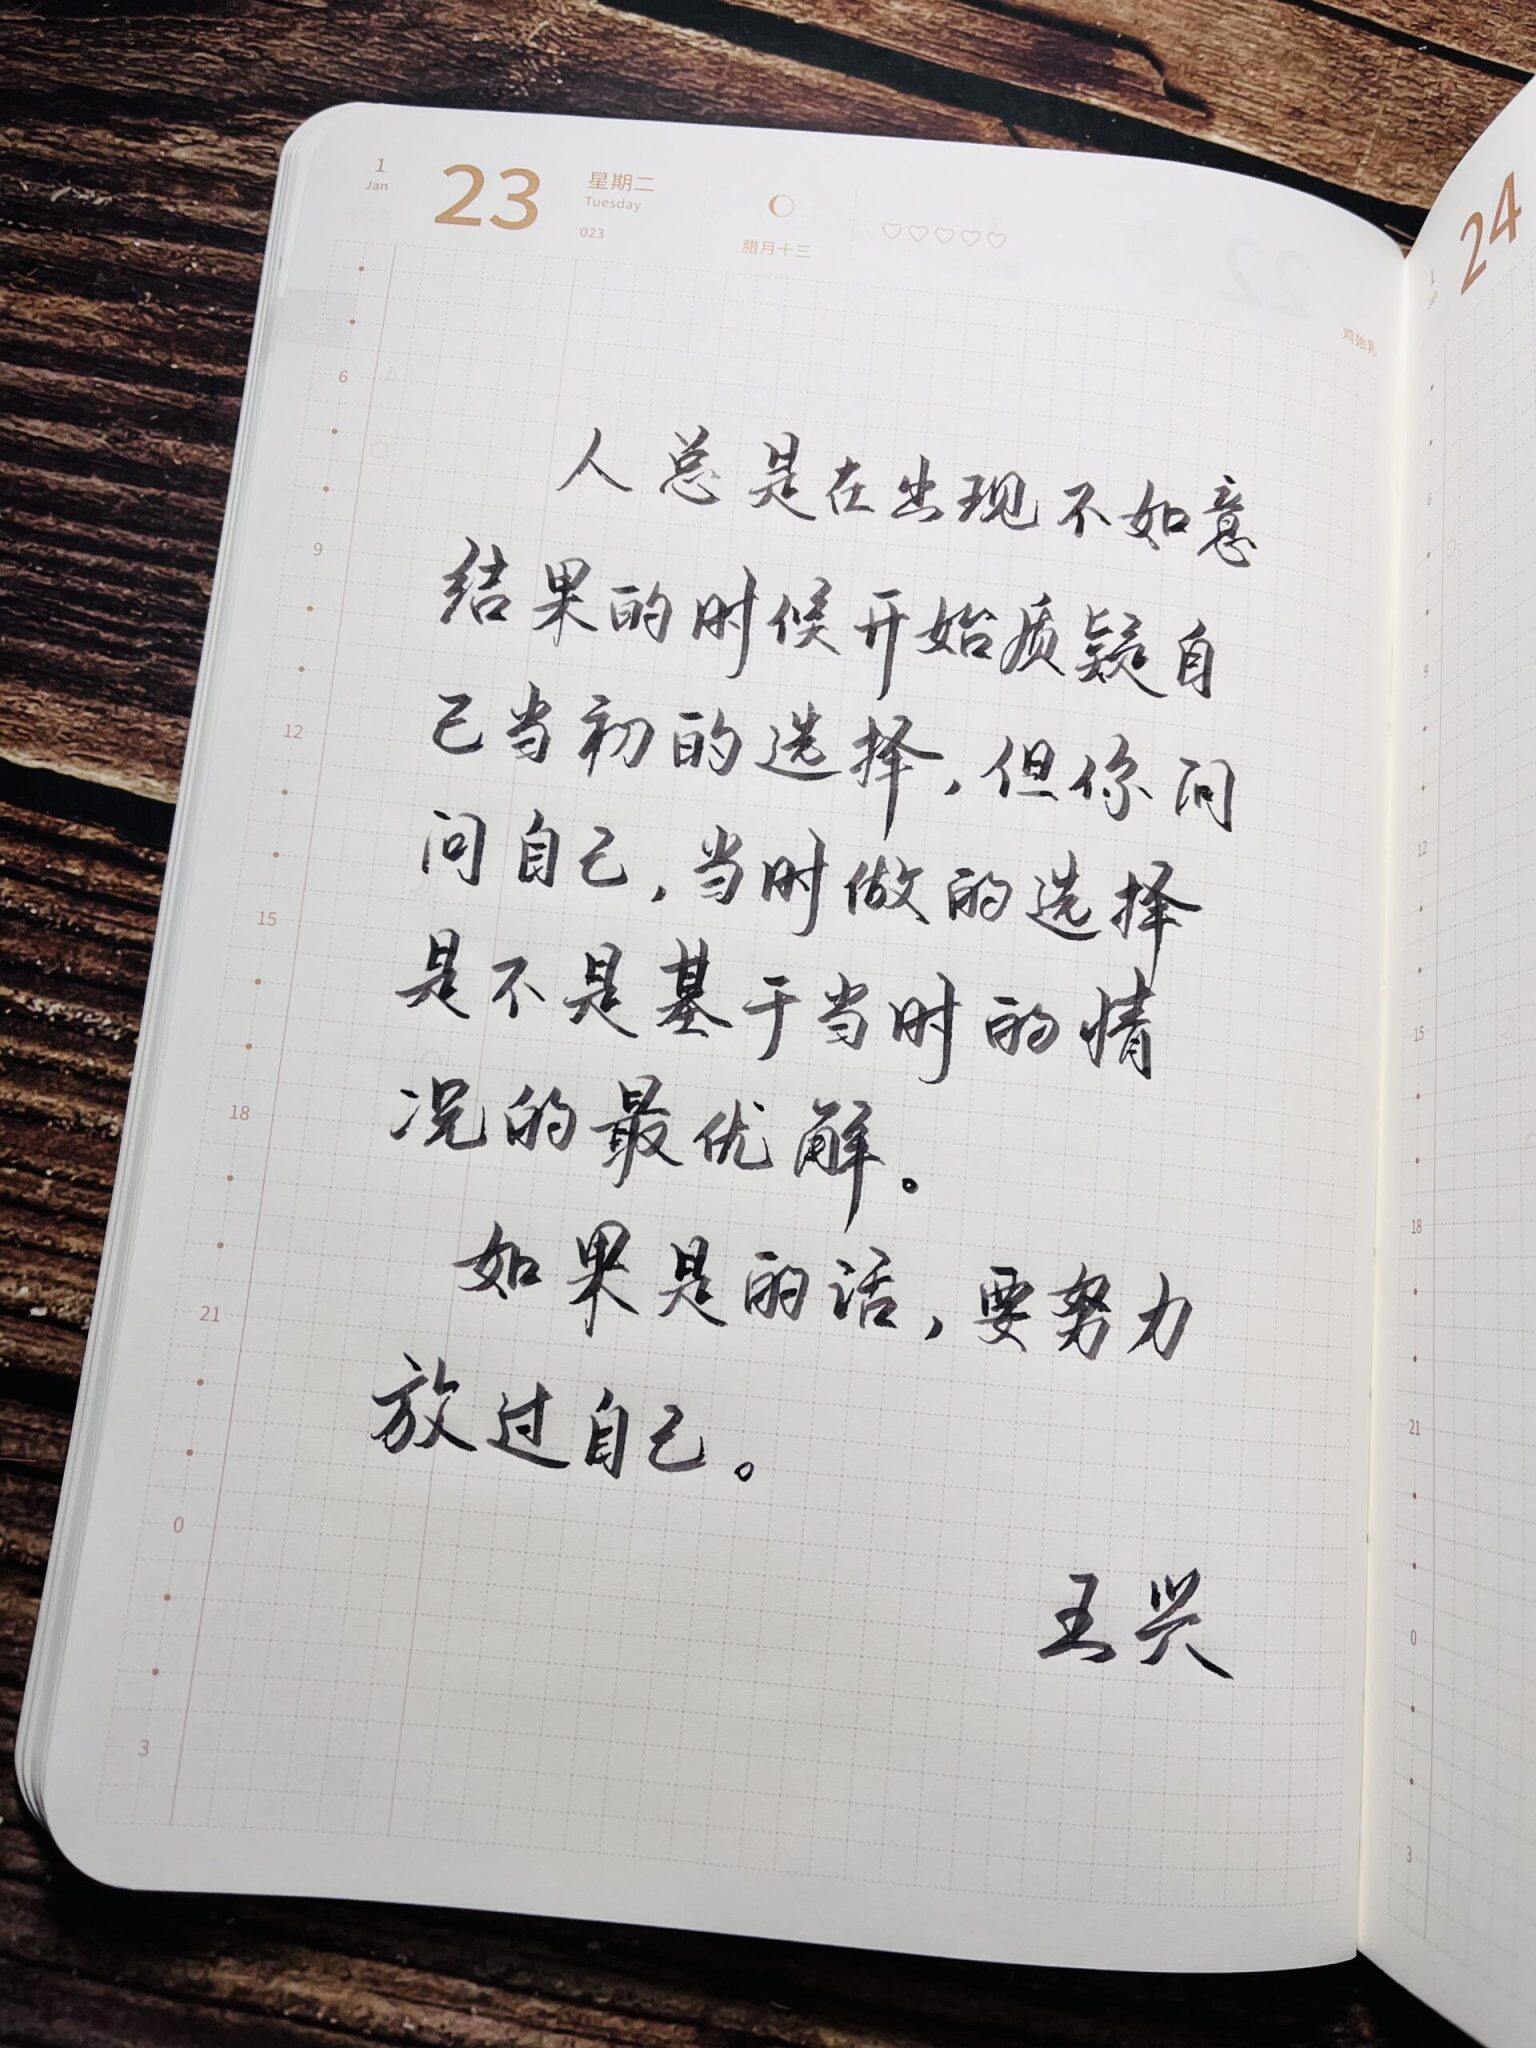 1
Jan
23
星期二
Tuesday
023
腊月十三
鸡始乳
人总是在出现不如意
结果的时候开始质疑自
己当初的选择，但你问
问自己，当时做的选择
是不是基于当时的情
况的最优解。
如果是的话，要努力
放过自己。
王兴
6
9
12
15
18
21
0
3
24
1
6
9
12
15
18
21
0
3